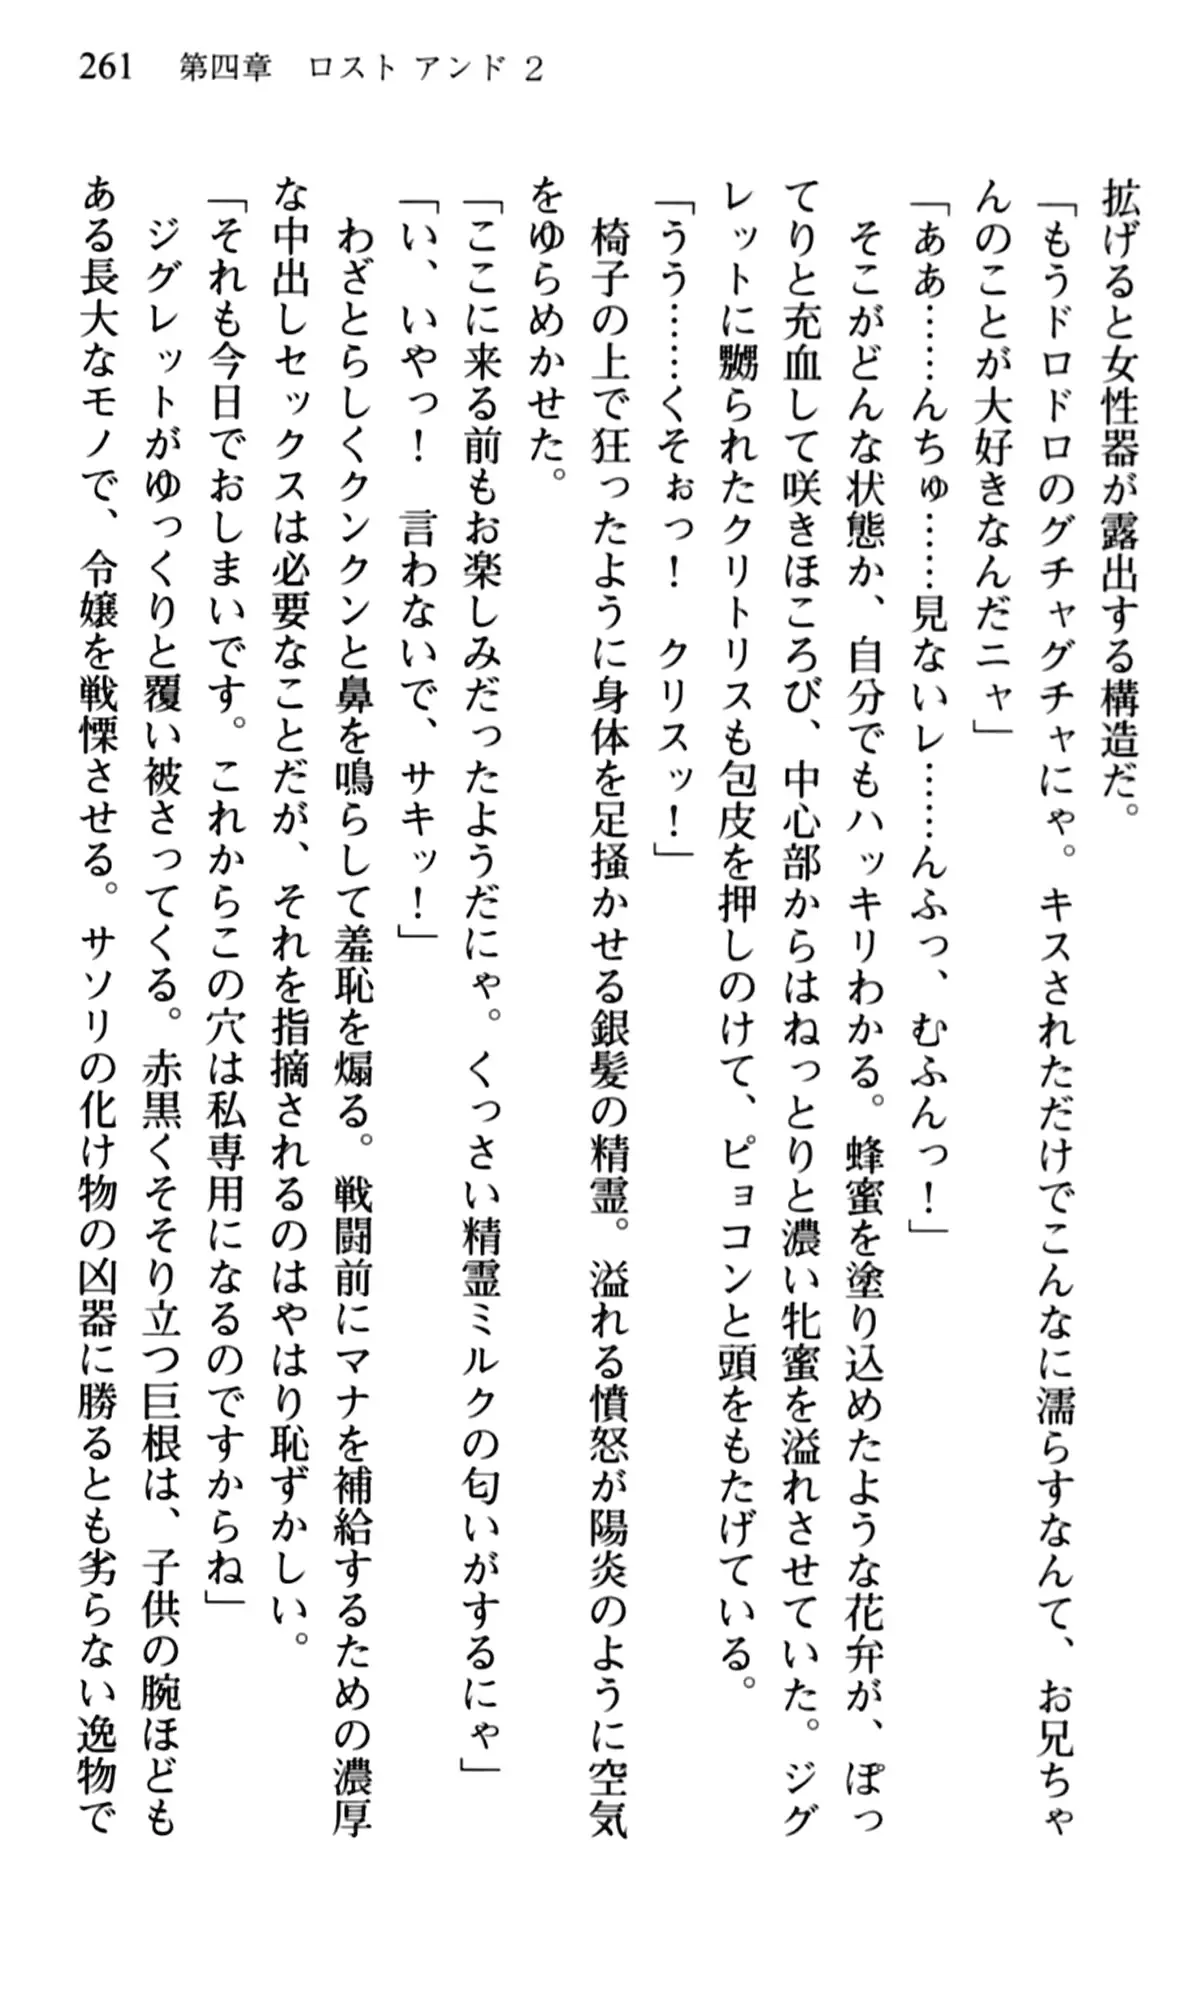 261 第四章 ロスト アンド 2
拡げると女性器が露出する構造だ。
「もうドロドロのグチャグチャにゃ。キスされただけでこんなに濡らすなんて、お兄ちゃ
んのことが大好きなんだニャ」
「ああ……んちゅ……見ないレ……んふっ、むふんっ！」
そこがどんな状態か、自分でもハッキリわかる。蜂蜜を塗り込めたような花弁が、ぽっ
てりと充血して咲きほころび、中心部からはねっとりと濃い牝蜜を溢れさせていた。ジグ
レットに嬲られたクリトリスも包皮を押しのけて、ピョコンと頭をもたげている。
「うう……くそぉっ！　クリスッ！」
椅子の上で狂ったように身体を足掻かせる銀髪の精霊。溢れる憤怒が陽炎のように空気
をゆらめかせた。
「ここに来る前もお楽しみだったようだにゃ。くっさい精霊ミルクの匂いがするにゃ」
「い、いやっ！　言わないで、サキッ！」
わざとらしくクンクンと鼻を鳴らして羞恥を煽る。戦闘前にマナを補給するための濃厚
な中出しセックスは必要なことだが、それを指摘されるのはやはり恥ずかしい。
「それも今日でおしまいです。これからこの穴は私専用になるのですからね」
ジグレットがゆっくりと覆い被さってくる。赤黒くそそり立つ巨根は、子供の腕ほども
ある長大なモノで、令嬢を戦慄させる。サソリの化け物の凶器に勝るとも劣らない逸物で